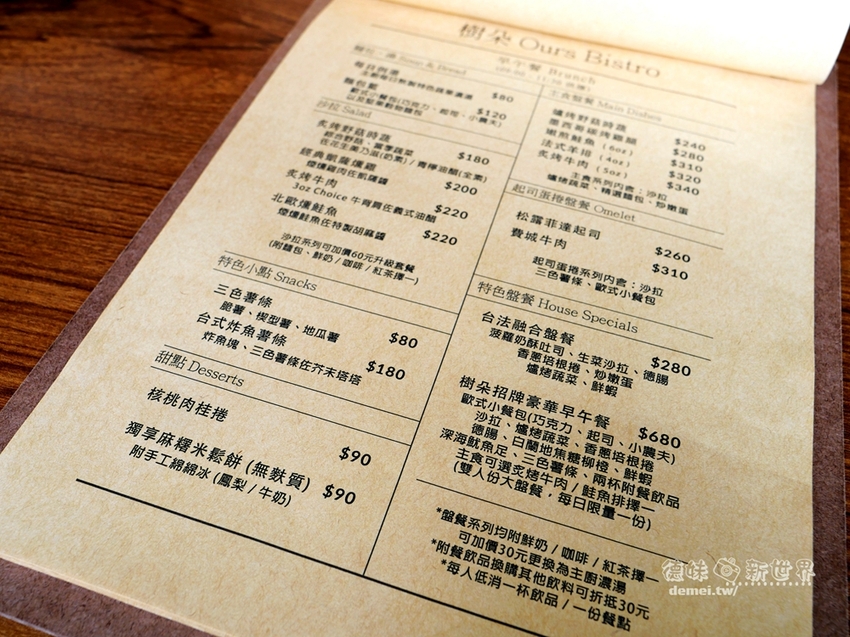 樹朵 Ours Bistro
早午餐 Brunch
Soup & Bread
$80
麵包籃
歐式小餐包(巧克力、起司、小農夫)
以及堅果穀物麵包
$120
沙拉 Salad
炙烤野菇時蔬 $180
綜合野菇、當季蔬菜
佐花生美乃滋(奶素) / 青檸油醋(全素)
經典凱薩燻雞 $200
煙燻雞肉佐凱薩醬
炙烤牛肉 $220
3oz Choice 牛肩胛佐義式油醋
北歐燻鮭魚 $220
煙燻鮭魚佐特製胡麻醬
沙拉系列可加價60元升級套餐
(附麵包、鮮奶 / 咖啡 / 紅茶擇一)
特色小點 Snacks
三色薯條 $80
脆薯、楔型薯、地瓜薯
台式炸魚薯條 $180
炸魚塊、三色薯條佐芥末塔塔
甜點 Desserts
核桃肉桂捲 $90
獨享麻糬米鬆餅 (無麩質) $90
附手工綿綿冰 (鳳梨 / 牛奶)
主食盤餐 Main Dishes
爐烤野菇時蔬 $240
墨西哥碳烤雞腿 $280
嫩煎鮭魚 (6oz) $310
法式羊排 (4oz) $320
炙烤牛肉 (5oz) $340
主食系列內含：沙拉
爐烤蔬菜、精選麵包、炒嫩蛋
起司蛋捲盤餐 Omelet
松露菲達起司 $260
費城牛肉 $310
起司蛋捲系列內含：沙拉
三色薯條、歐式小餐包
特色盤餐 House Specials
台法融合盤餐 $280
菠蘿奶酥吐司、生菜沙拉、德腸
香蔥培根捲、炒嫩蛋
爐烤蔬菜、鮮蝦
樹朵招牌豪華早午餐 $680
歐式小餐包(巧克力、起司、小農夫)
沙拉、爐烤蔬菜、香蔥培根捲
德腸、白蘭地焦糖柳橙、鮮蝦
深海魷魚足、三色薯條、兩杯附餐飲品
主食可選炙烤牛肉 / 鮭魚排擇一
(雙人份大盤餐，每日限量一份)
*盤餐系列均附鮮奶 / 咖啡 / 紅茶擇一
可加價30元更換為主廚濃湯
*附餐飲品換購其他飲料可折抵30元
*每人低消一杯飲品 / 一份餐點
德味 新世界
demei.tw/